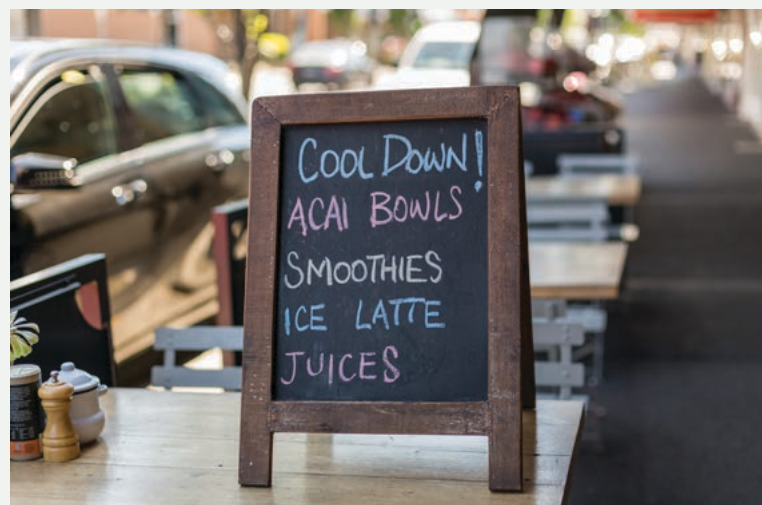 COOL DOWN!
ACAI BOWLS
SMOOTHIES
ICE LATTE
JUICES